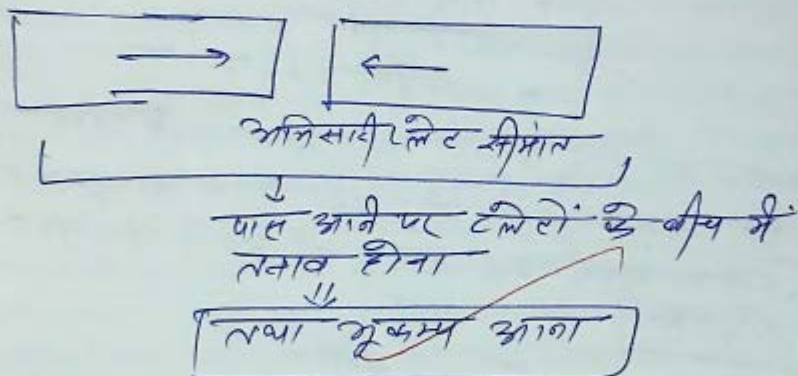 अभिसारी प्लेट सीमांत
पास आने पर प्लेटों के बीच में
तनाव होना
तथा भूकम्प आना